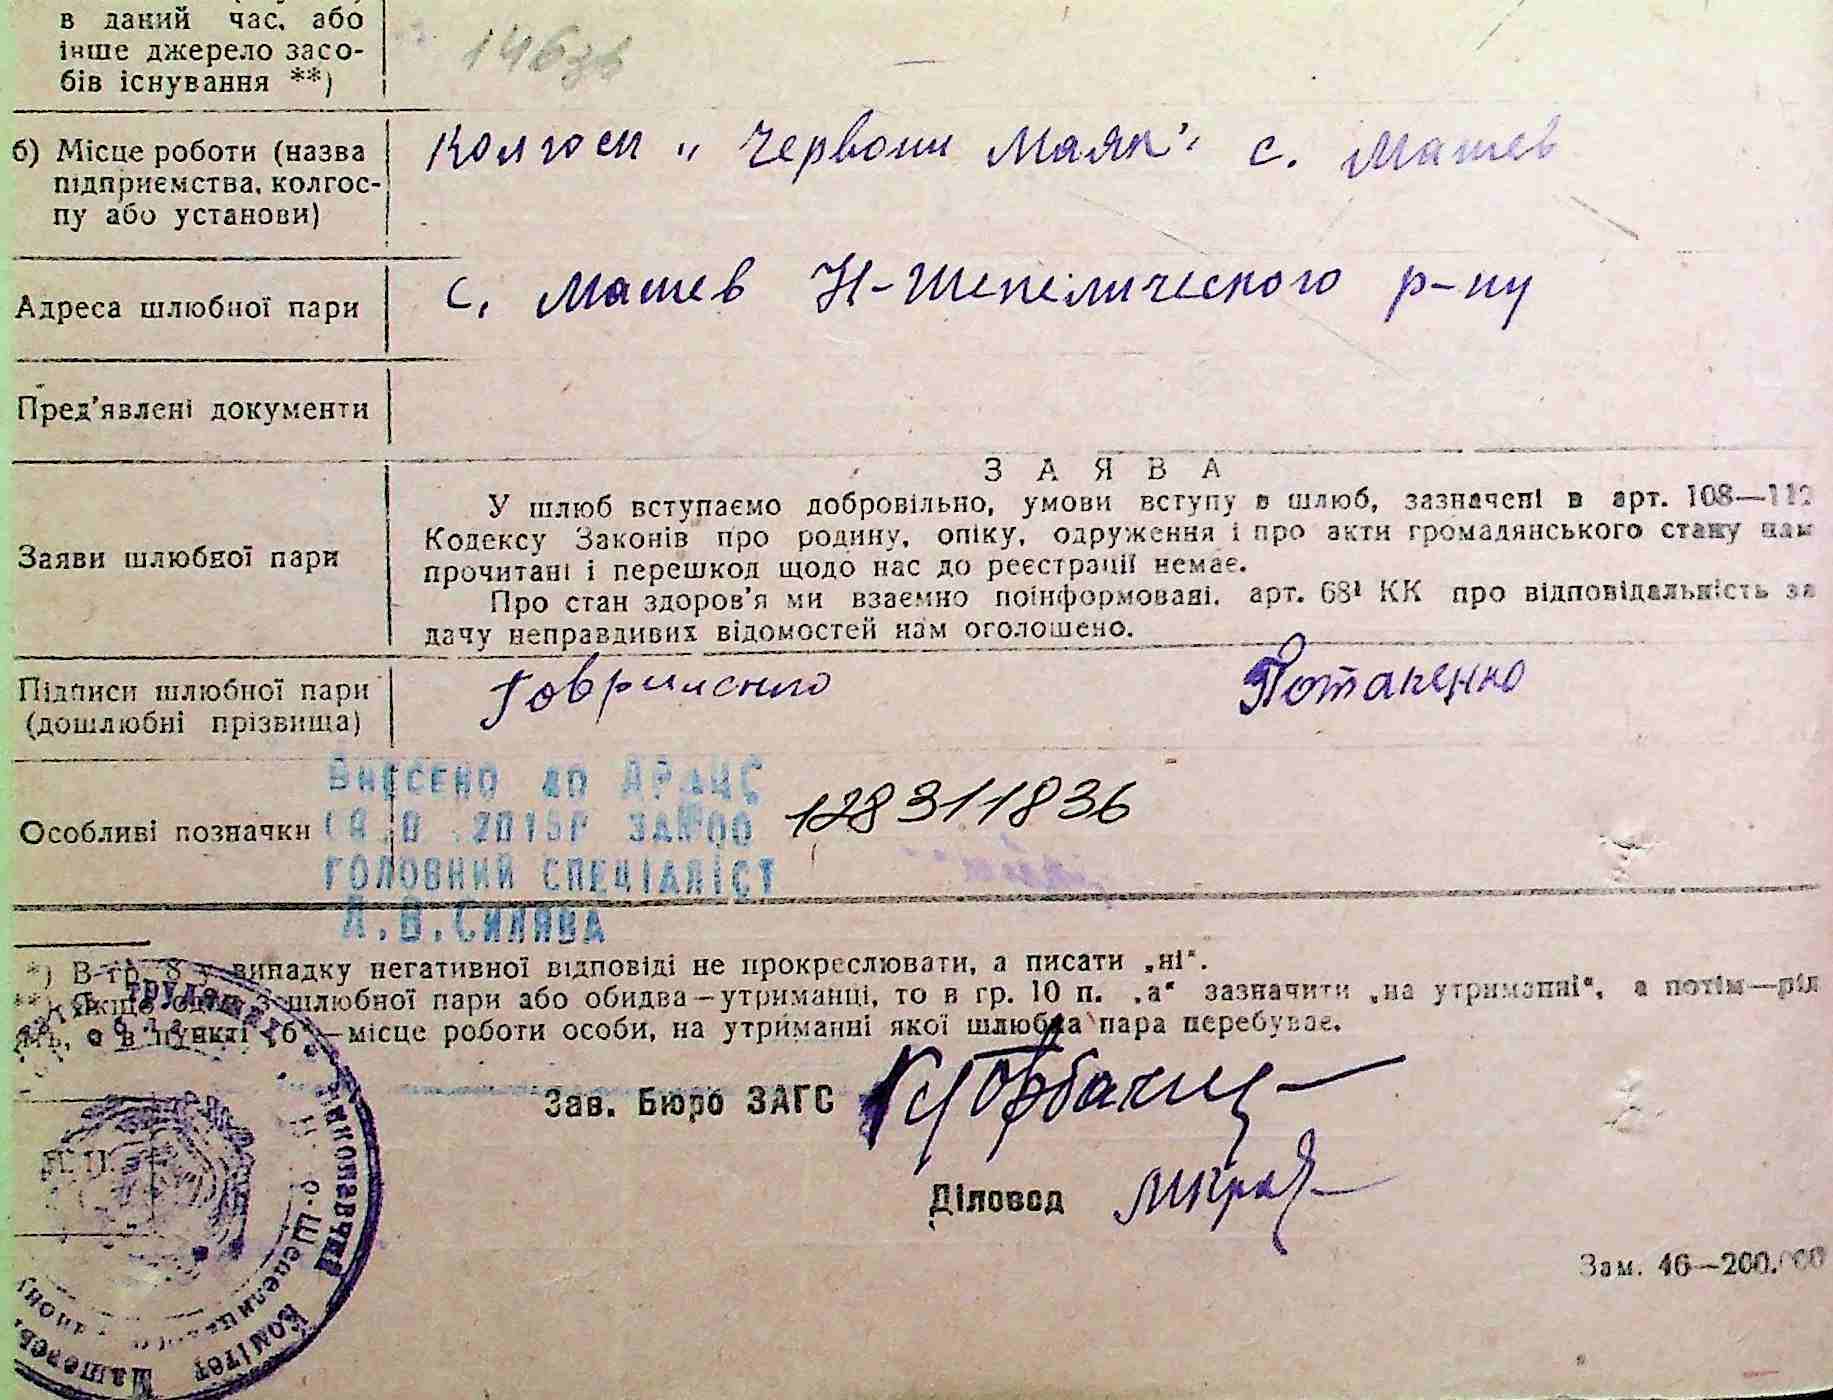 в даний час, або
інше джерело засо-
бів існування **)
146зв
б) Місце роботи (назва
підприємства, колгос-
пу або установи)
Колгосп „Червони Маяк" с. Машев
Адреса шлюбної пари
с. Машев Н-Шепелического р-ну
Пред'явлені документи
ЗАЯВА
Заяви шлюбної пари
У шлюб вступаємо добровільно, умови вступу в шлюб, зазначені в арт. 108—112
Кодексу Законів про родину, опіку, одруження і про акти громадянського стану нам
прочитані і перешкод щодо нас до реєстрації немає.
Про стан здоров'я ми взаємно поінформовані, арт. 68¹ КК про відповідальність за
дачу неправдивих відомостей нам оголошено.
Підписи шлюбної пари
(дошлюбні прізвища)
Говриленко Потапенко
Особливі позначки
ВНЕСЕНО ДО ДРАЦС
ГОЛОВНИЙ СПЕЦІАЛІСТ
128311836
*) В гр. 8 у випадку негативної відповіді не прокреслювати, а писати „ні".
**) Якщо один з шлюбної пари або обидва—утриманці, то в гр. 10 п. „а" зазначити „на утриманні", а потім—рід
в пункті „б"—місце роботи особи, на утриманні якої шлюбна пара перебуває.
Зав. Бюро ЗАГС
Діловод
М. П.
Виконавчий Комітет
Н.-Шепелицького району
Зам. 46—200.000